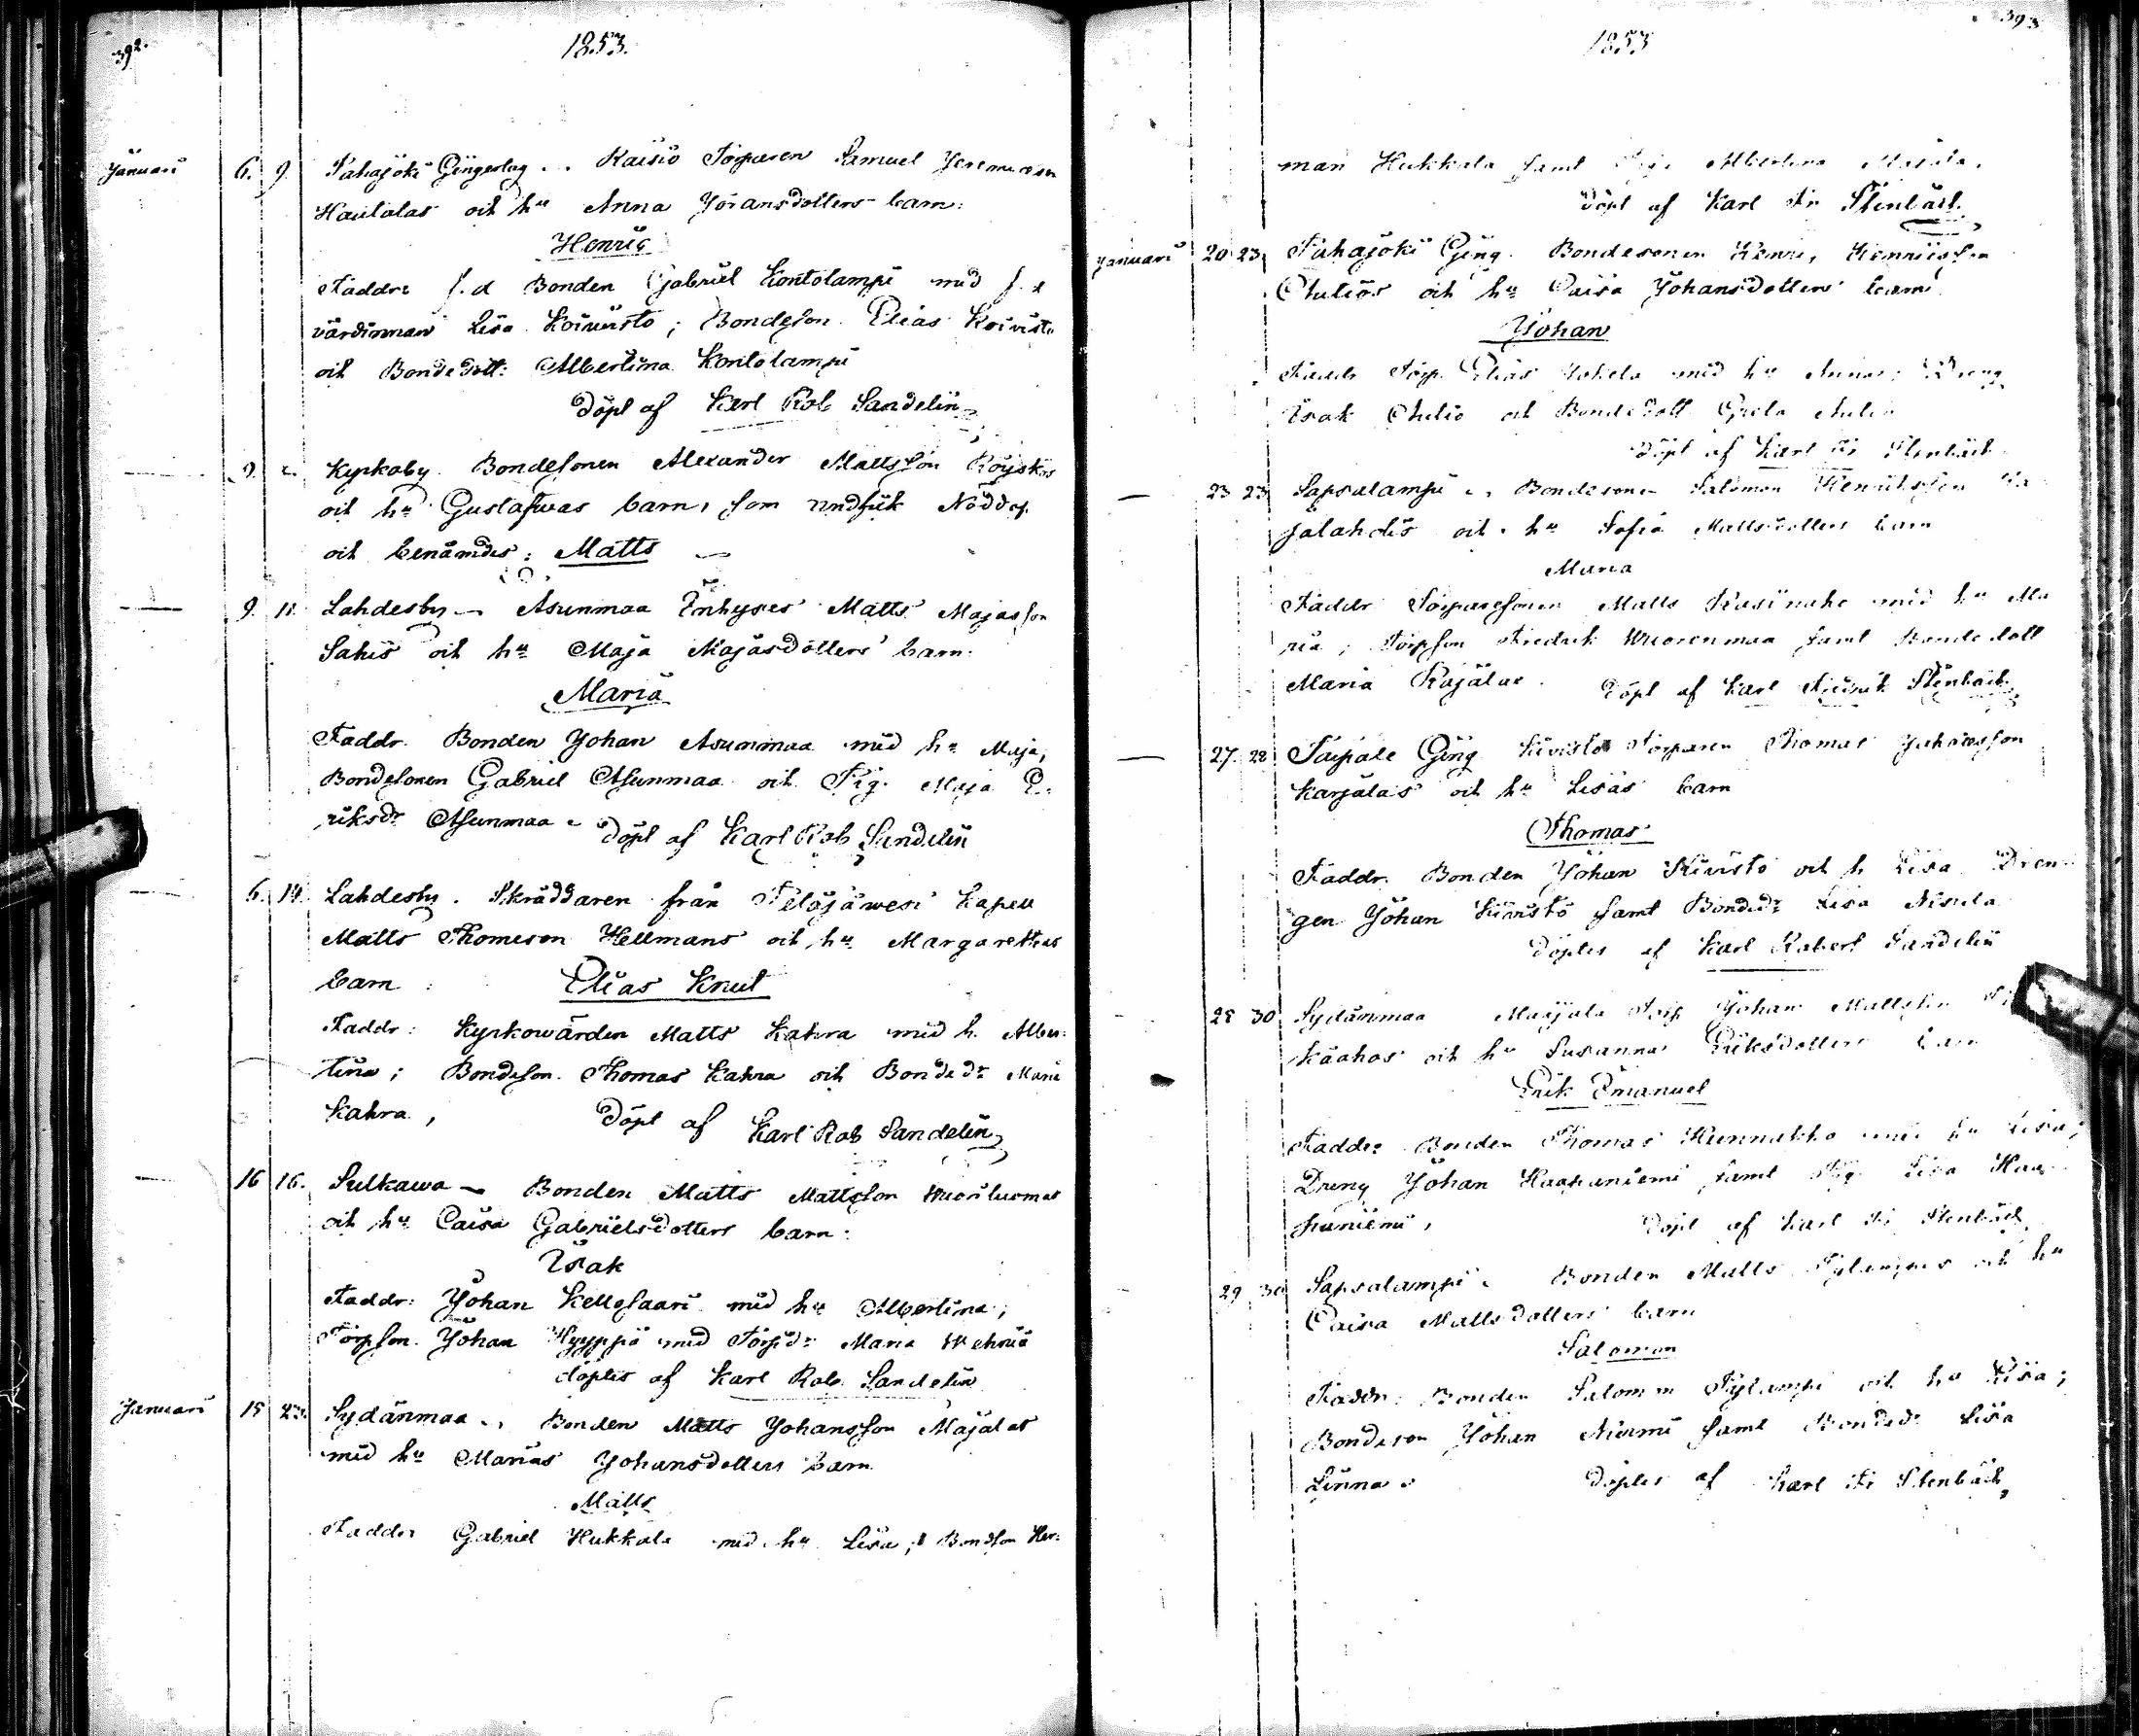 392.
1853.
Januari 6. 9. Pahajoki Gingerlag .. Kaisio Torparen Samuel Jeremiasson
Hautalas och hu Anna Johansdotters barn:
Henric
Faddre f.d Bonden Gabriel Kontolampi med f.d
värdinnan Lisa Koivisto; Bondeson Elias Koivisto
och Bondedott: Albertina Kontolampi
Döpt af Karl Rob Sandelin
9. Kyrkoby. Bondesonen Alexander Mattsson Röyskös
och hu Gustafwas barn, som undfick Nöddop
och benämdes: Matts
9. 11. Lahdesby Asunmaa Inhyses Matts Majasson
Sahis och hu Maja Majasdotters barn:
Maria
Faddr. Bonden Johan Asunmaa med hu Maja,
Bondesonen Gabriel Asunmaa och Pig. Maja E-
riksdr Asunmaa Döpt af Karl Rob Sandelin
6. 14. Lahdesby. Skräddaren från Kapell
Matts Thomeson Hellmans och hu Margarethas
barn: Elias Knut
Faddr: Kyrkowärden Matts Kahra med h. Alber-
tina; Bondeson. Thomas Kahra och Bondedr Maria
Kahra, Döpt af Karl Rob Sandelin
16 16. Sulkawa Bonden Matts Mattsson Wuoriluomas
och hu Caisa Gabrielsdotters barn:
Isak
Faddr: Johan Kellosaari med hu Albertina;
Torpson. Johan Hyyppä med Torpdr Maria
döptes af Karl Rob. Sandelin
Januari 15 23. Sydänmaa Bonden Matts Johansson Majalas
med hu Marias Johansdotters barn
Matts
Faddr Gabriel Hukkala med hu Lisa; Bondson Her-
393
1853
man Hukkala samt Pig. Albertina Majala.
Döpt af Karl Fr Stenbäck
Januari 20 23. Pahajoki Ging. Bondesonen Henric Henricsson
Autiös och hu Caisa Johansdotters barn
Johan
Faddr Torp. Elias Jokela med hu Anna; Dreng
Isak Autio och Bondedott Greta Autio
Döpt af Karl Fr Stenbäck
23 23 Sapsalampi Bondesonen Salomon Henriksson Ka-
jalahdis och hu Sofia Mattsdotters barn
Maria
Faddr Torparesonen Matts med hu Ma
ria; Torpson Fredrik Wuorenmaa samt Bondedott
Maria Rajälae. Döpt af Karl Fredrik Stenbäck
27. 28 Taipale Ging Kivistö Torparen Thomas Johansson
Karjalas och hu Lisas barn
Thomas
Faddr. Bonden Johan Kivistö och h Lisa Dren-
gen Johan Kivistö samt Bondedr Lisa Nisula
Döptes af Karl Robert Sandelin
28 30 Sydänmaa Marjala Torp Johan Mattsson
Kaahas och hu Susanna Eriksdotters barn
Erik Emanuel
Faddr Bonden Thomas Hunnakko med hu Lisa;
Dreng Johan Haapaniemi samt Pig. Lisa Haa-
paniemi, Döpt af Karl Fr Stenbäck,
29 30 Sapsalampi Bonden Matts Pylampis och hu
Caisa Mattsdotters barn
Salomon
Faddr: Bonden Salomon Pylampi och hu Lisa;
Bondeson Johan Niemi samt Bondedr Lisa
Linna. Döptes af Karl Fr Stenbäck,